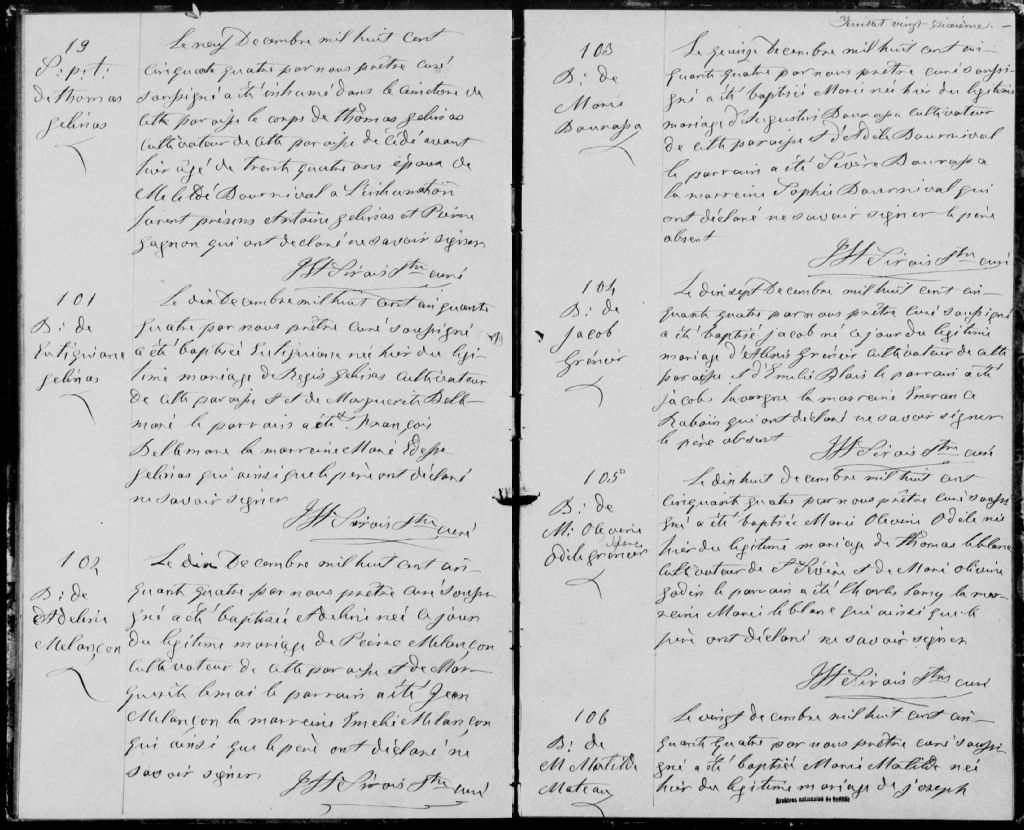 19
S: p: t:
de thomas
gelinas
Le neuf Decembre mil huit cent
cinquate quatre par nous prêtre curé
soussigné a été inhumé dans le cimetiere de
cette paroisse le corps de thomas gelinas
cultivateur de cette paroisse décédé avant
hier âgé de trente quatre ans époux de
Bournival a l'inhumation
furent présens Antoine gelinas et Pierre
gagnon qui ont declaré ne savoir signer
JH Sirois Ptre curé
101
B: de
gelinas
Le dix Decembre mil huit cent cinquante
quatre par nous prêtre curé soussigné
a été baptisée née hier du légi-
time mariage de Regis gelinas cultivateur
de cette paroisse et de Marguerite Belle-
mare le parrain a été François
Bellemare la marraine Marie
gelinas qui ainsi que le père ont déclaré
ne savoir signer
JH Sirois Ptre curé
102
B: de
Adeline
Melançon
Le dix Decembre mil huit cent cin-
quante quatre par nous prêtre curé soussi-
gné a été baptisée Adeline née ce jour
du légitime mariage de Pierre Melançon
cultivateur de cette paroisse et de Mar-
guerite lemai le parrain a été Jean
Melançon la marraine Emelie Melançon
qui ainsi que le père ont déclaré ne
savoir signer
JH Sirois Ptre curé
feuillet vingt-sixième.
103
B: de
Marie
Bourassa
Le quinze Decembre mil huit cent cin-
quante quatre par nous prêtre curé soussi-
gné a été baptisée Marie née hier du légitime
mariage d'Augustin Bourassa cultivateur
de cette paroisse et d'Adèle Bournival
le parrain a été Sévère Bourassa
la marraine Sophie Bournival qui
ont déclaré ne savoir signer le père
absent
JH Sirois Ptre curé
104
B: de
Jacob
Grénier
Le dix sept Decembre mil huit cent cin-
quante quatre par nous prêtre curé soussigné
a été baptisé jacob né ce jour du légitime
mariage d'Alexis Grénier cultivateur de cette
paroisse et d'Emelie Blais le parrain a été
jacob lavergne la marraine
qui ont déclaré ne savoir signer
le père absent
JH Sirois Ptre curé
105
B: de
M: Olivine
Odile grénier
Le dix huit de cembre mil huit cent
cinquante quatre par nous prêtre curé soussi-
gné a été baptisée Marie Olivine Odile née
hier du légitime mariage de thomas leblanc
cultivateur de St Sévère et de Marie olivine
le parrain a été Charles lamy la mar-
reine Marie leblanc qui ainsi que le
père ont déclaré ne savoir signer
JH Sirois Ptre curé
106
B: de
M Matilde
Mateau
Le vingt de cembre mil huit cent cin-
quante quatre par nous prêtre curé soussi-
gné a été baptisée Marie Matilde née
hier du légitime mariage de joseph
Archives nationales du Québec